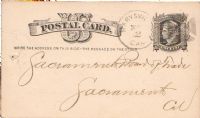 POSTAL CARD.
WRITE THE ADDRESS ON THIS SIDE - THE MESSAGE ON THE OTHER
Sacramento Board of Trade
Sacramento
Cal